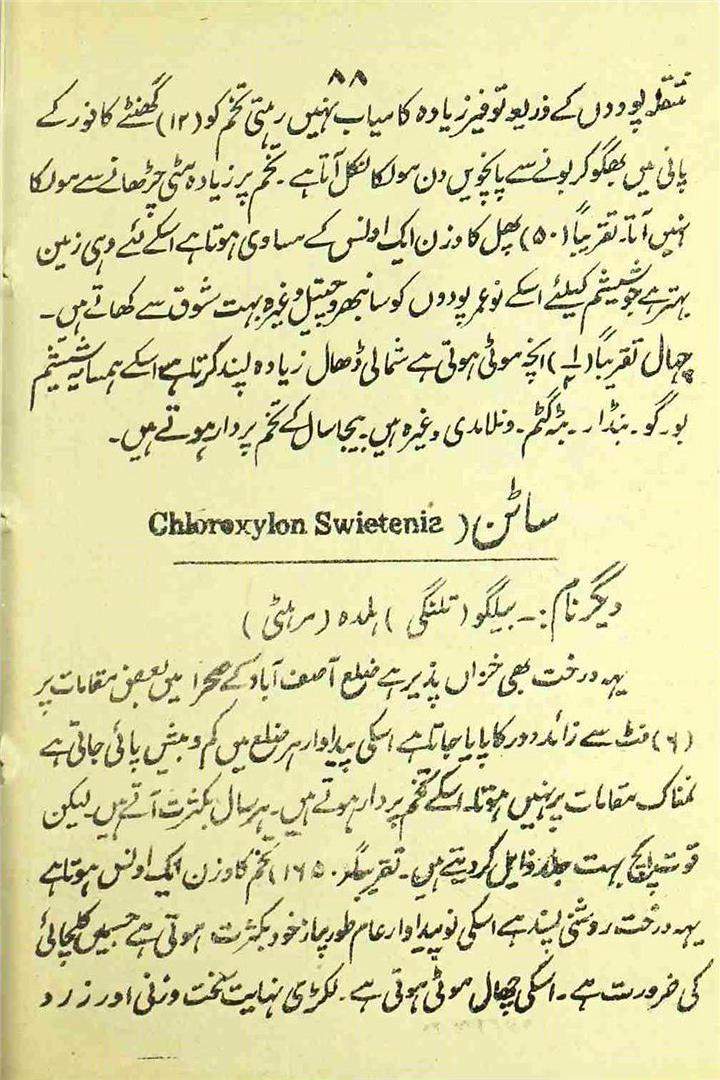 ۸۸
منتقلہ پودوں کے ذریعہ توفیر زیادہ کامیاب نہیں رہتی تخم کو (۱۲) گھنٹے کافور کے
پانی میں بھگو کر بونے سے پانچویں دن مولکا نکل آتا ہے۔ تخم پر زیادہ مٹی چڑھانے سے مولکا
نہیں آتا۔ تقریباً (۵۰) پھل کا وزن ایک اونس کے مساوی ہوتا ہے اسکے لئے وہی زمین
بہتر ہے جو شیشم کیلئے اسکے نوعمر پودوں کو سانبھر و چیتل وغیرہ بہت شوق سے کھاتے ہیں۔
چھال تقریباً (۱/۲) انچہ موٹی ہوتی ہے شمالی ڈھال زیادہ پسند کرتا ہے اسکے ہمسایہ شیشم
بورگو۔ بنڈار۔ بٹہ گٹم۔ ونلامدی وغیرہ ہیں۔ بیجا سال کے تخم پر دار ہوتے ہیں۔
ساٹن ( Chloroxylon Swietenis
دیگر نام:۔ بیلگو (تلنگی) ہلدہ (مرہٹی)
یہہ درخت بھی خزاں پذیر ہے ضلع آصف آباد کے صحرا میں بعض مقامات پر
(۶) فٹ سے زائد دور کا پایا جاتا ہے اسکی پیداوار ہر ضلع میں کم و بیش پائی جاتی ہے
نمناک مقامات پر نہیں ہوتا۔ اسکے تخم پر دار ہوتے ہیں۔ ہر سال بکثرت آتے ہیں۔ لیکن
قوت اپچ بہت جلد زایل کر دیتے ہیں۔ تقریباً (۱۶۵۰) تخم کا وزن ایک اونس ہوتا ہے
یہہ درخت روشنی پسند ہے اسکی نو پیداوار عام طور پر از خود بکثرت ہوتی ہے جسمیں کلچائی
کی ضرورت ہے۔ اسکی چھال موٹی ہوتی ہے۔ لکڑی نہایت سخت وزنی اور زرد